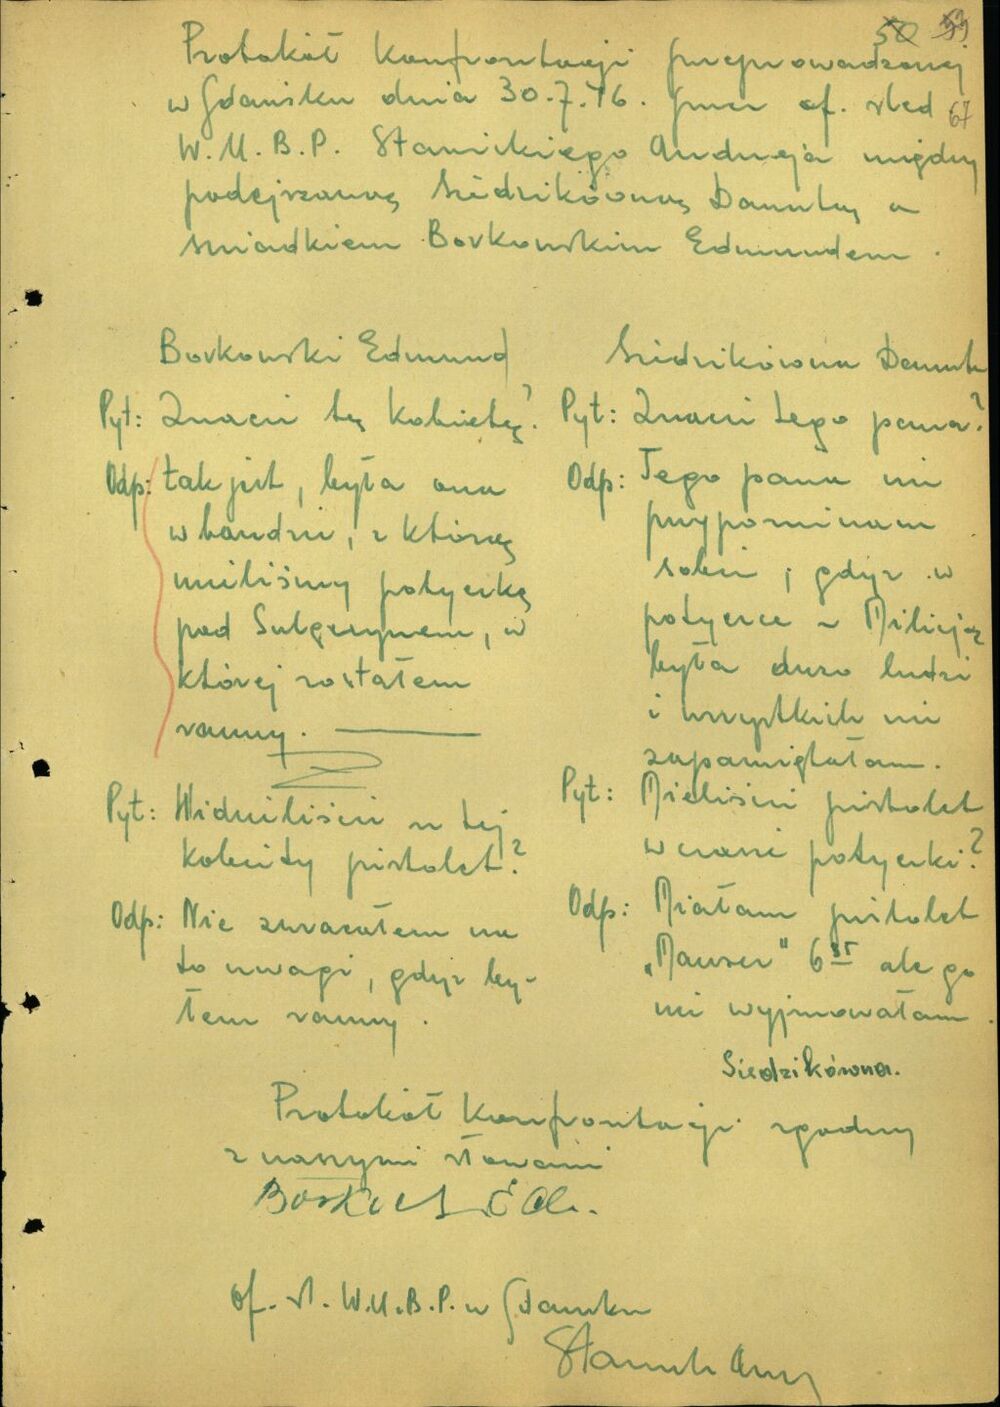 Protokół Konfrontacji przeprowadzonej
w Gdańsku dnia 30.7.46. przez of. śled
67
W.U.B.P. Stawickiego Andrzeja między
podejrzaną Siedzikówną Danutą a
świadkiem Borkowskim Edmundem.
Borkowski Edmund
Pyt: Znacie tę kobietę?
Odp: tak jest, była ona
w bandzie, z którą
mieliśmy potyczkę
pod Sulęczynem, w
której zostałem
ranny.
Pyt: Widzieliście u tej
kobiety pistolet?
Odp: Nie zwracałem na
to uwagi, gdyż by-
łem ranny.
Siedzikówna Danuta
Pyt: Znacie tego pana?
Odp: Tego pana nie
przypominam
sobie, gdyż w
potyczce z Milicją
była dużo ludzi
i wszystkich nie
zapamiętałam.
Pyt: Mieliście pistolet
w czasie potyczki?
Odp: Miałam pistolet
"Mauser" 6³⁵ ale go
nie wyjmowałam.
Siedzikówna.
Protokół Konfrontacji zgodny
z naszymi słowami
of. śl. W.U.B.P. w Gdańsku